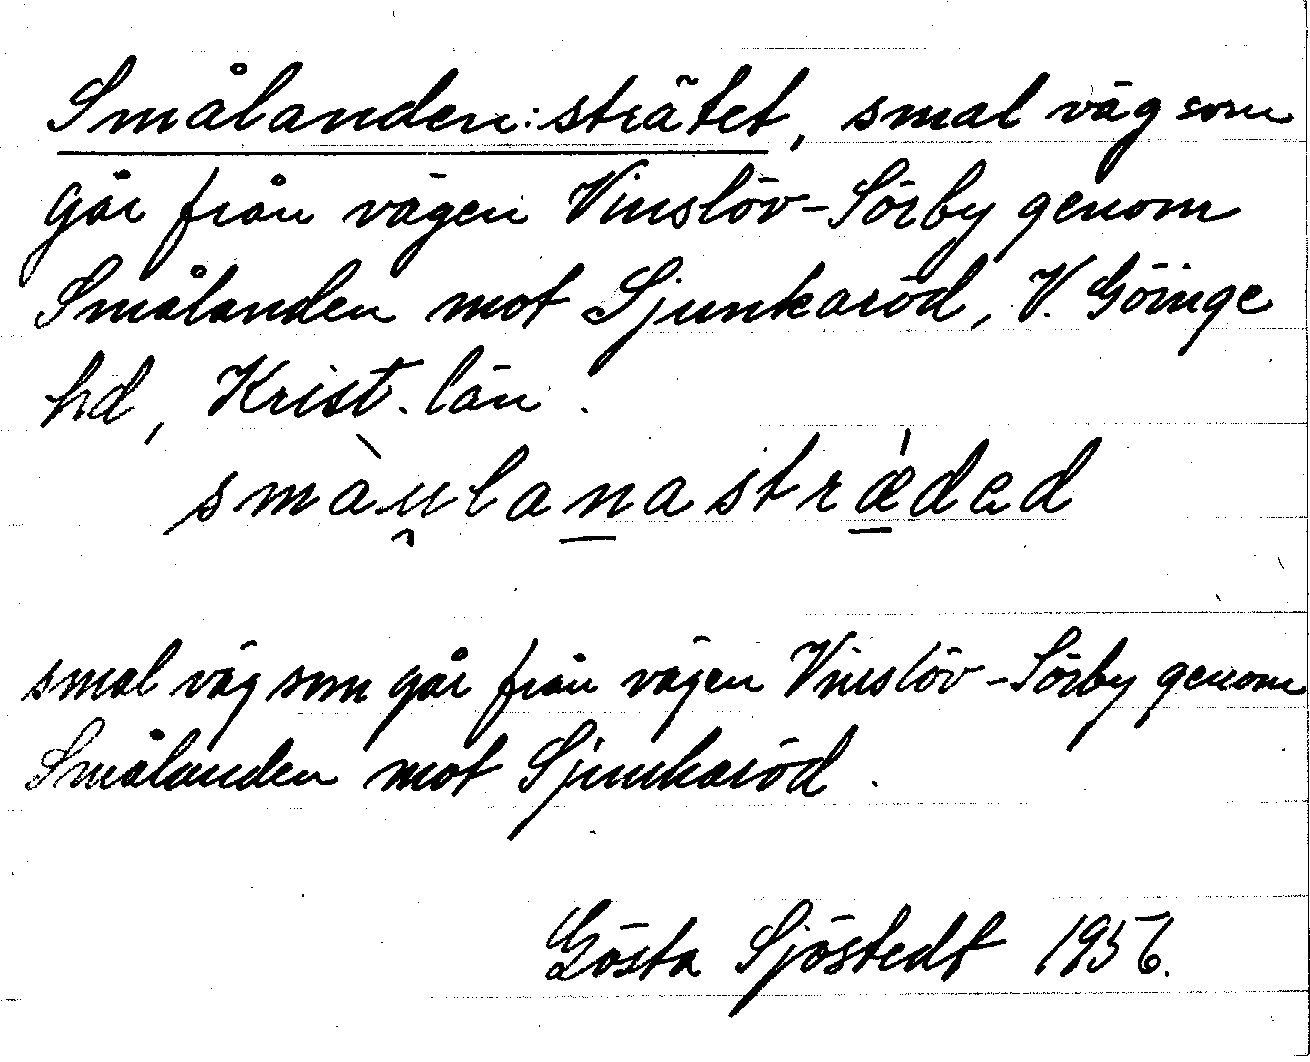 Smålanden:strätet, smal väg som
går från vägen Vinslöv-Sörby genom
Smålanden mot Sjunkaröd, V. Göinge
hd, Krist. län.
smàu̯lanastrǽdad
smal väg som går från vägen Vinslöv-Sörby genom
Smålanden mot Sjunkaröd.
Gösta Sjöstedt 1956.